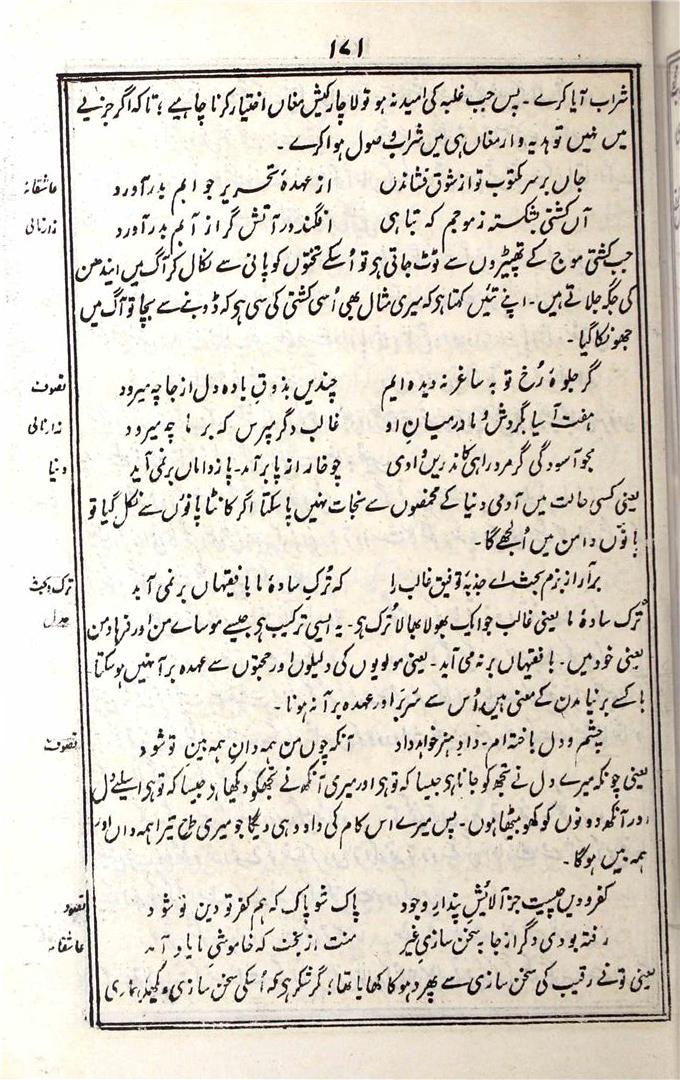 ۱۷۱
شراب آیا کرے ۔ پس جب غلبہ کی امید نہ ہو تو لاچار کیش مغاں اختیار کرنا چاہیے ؛ تاکہ اگر جزیے
میں نہیں تو ہدیہ وار مغاں ہی میں شراب وصول ہوا کرے ۔
جاں بر سر مکتوب تو از شوق فشاندن از عہدۂ تحریر جوابم بدر آورد
عاشقانہ
آں کشتیِ بشکستہ ز موجم کہ تباہی افگند در آتش گر از آبم بدر آورد
زار نالی
جب کشتی موج کے تھپیڑوں سے ٹوٹ جاتی ہی تو اُسکے تختوں کو پانی سے نکال کر آگ میں ایندھن
کی جگہ جلاتے ہیں ۔ اپنے تئیں کہتا ہو کہ میری مثال بھی اُسی کشتی کی سی ہو کہ ڈوبنے سے بچا تو آگ میں
جھونکا گیا ۔
گر جلوۂ رُخ تو بہ ساغر نہ دیدہ ایم چندیں بذوقِ بادہ دل از جا چہ میرود
تصوف
ہفت آسیا بگردش و ما درمیانِ او غالب دگر مپرس کہ بر ما چہ میرود
زار نالی
مجو آسودگی گر مرد راہی کاندریں وادی چو خار از پا برآمد ۔ پا ز داماں بر نمی آید
دنیا
یعنی کسی حالت میں آدمی دنیا کے مخمصوں سے نجات نہیں پا سکتا اگر کانٹا پانوں سے نکل گیا تو
پانوں دامن میں اُلجھے گا ۔
برآر از بزم بحث اے جذبۂ توفیق غالب را کہ تُرکِ سادۂ ما با فقیہاں بر نمی آید
ترک بحث
جدل
تُرکِ سادۂ ما یعنی غالب جو ایک بھولا بھالا تُرک ہی ۔ یہ ایسی ترکیب ہی جیسے موساے من اور فرہاد من
یعنی خود میں ۔ با فقیہاں بر نہ می آید ۔ یعنی مولویوں کی دلیلوں اور حجتوں سے عہدہ برآ نہیں ہو سکتا
با کسے بر نیامدن کے معنی ہیں اُس سے سربر اور عہدہ برآ نہ ہونا ۔
چشم و دل باختہ ام ۔ دادِ ہنر خواہد داد آنکہ چوں من ہمہ دانِ ہمہ بین تو شود
تصوف
یعنی چونکہ میرے دل نے تجھ کو جانا ہی جیسا کہ تو ہی اور میری آنکھ نے تجھکو دیکھا ہی جیسا کہ تو ہی اسلیے دل
اور آنکھ دونوں کو کھو بیٹھا ہوں ۔ پس میرے اس کام کی داد وہی دیگا جو میری طرح تیرا ہمہ داں اور
ہمہ بیں ہوگا ۔
کفر و دیں چیست جز آلایشِ پندارِ وجود پاک شو پاک کہ ہم کفر تو دین تو شود
تصوف
رفتہ بودی دگر از جا بہ سخن سازیِ غیر منت از بخت کہ خاموشیِ ما یاد آمد
عاشقانہ
یعنی تو نے رقیب کی سخن سازی سے پھر دھوکا کھایا تھا ؛ مگر شکر ہی کہ اُسکی سخن سازی دیکھکر ہماری